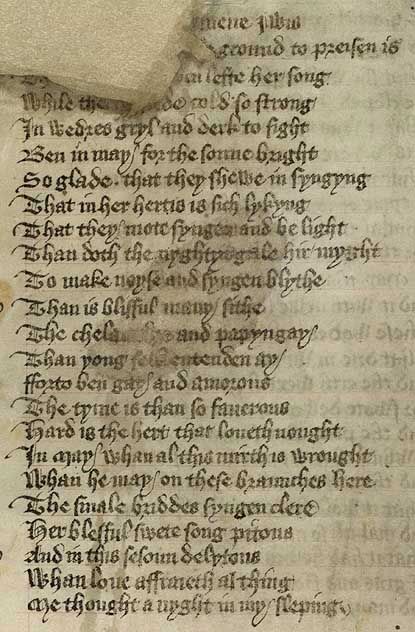 ground to preisen is
leffte her song
While the cold so strong
In wedres gryl and derk to sight
Ben in may for the sonne bright
So glade that they shewe in syngyng
That in her hertis is sich lykyng
That they mote syngen and be light
Than doth the nyghtyngale hir myght
To make noyse and syngen blythe
Than is blisful many sithe
The chelaundre and papyngay
Than yong folk entenden ay
fforto ben gay and amorous
The tyme is than so fauerous
Hard is the hert that loueth nought
In may whan al this mirth is wrought
Whan he may on these braunches here
The smale briddes syngen clere
Her blesful swete song pitous
And in this sesoun delytous
Whan loue affraieth al thing
Me thought a nyght in my sleping